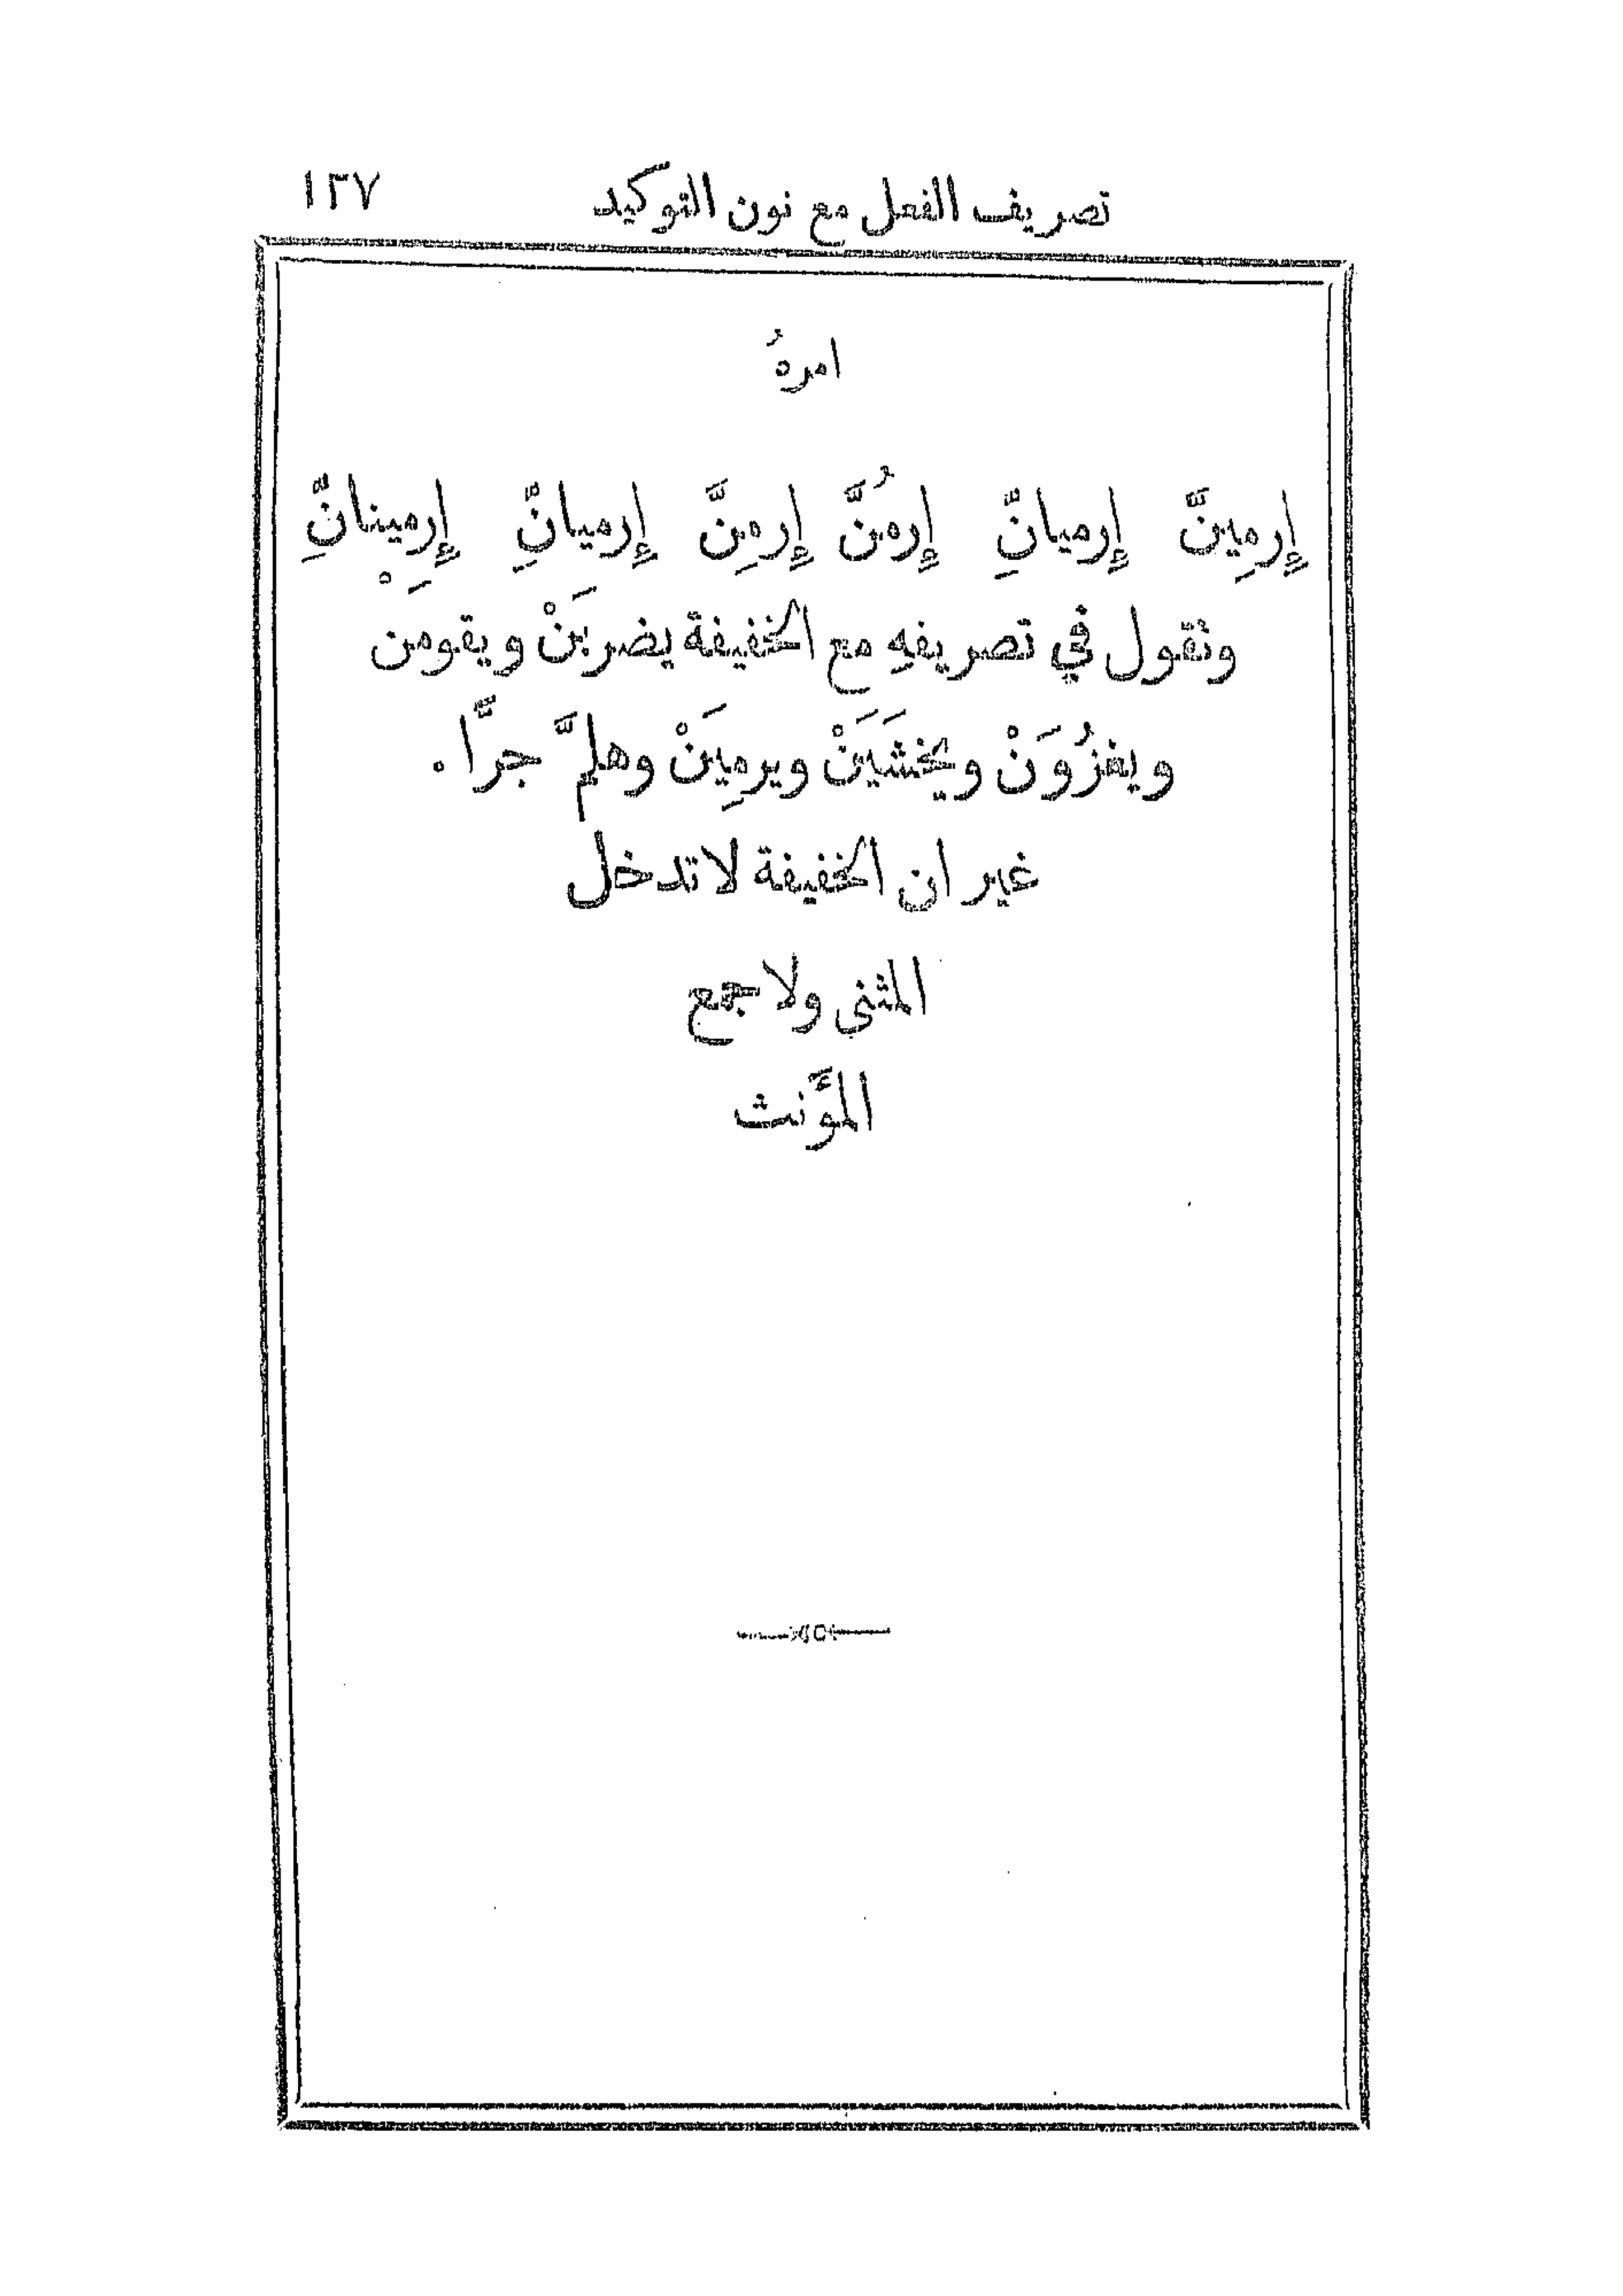 تصريف الفعل مع نون التوكيد ١٣٧
امرهُ
إِرمِينَّ إِرميانِّ إِرمُنَّ إِرمِنَّ إِرميانِّ إِرمينانِّ
وتقول في تصريفهِ مع الخفيفة يضربَنْ ويقومَنْ
ويغزُوَنْ ويخشَيَنْ ويرمِيَنْ وهلمَّ جرًّا.
غير ان الخفيفة لا تدخل
المثنى ولا جمع
المؤَنث